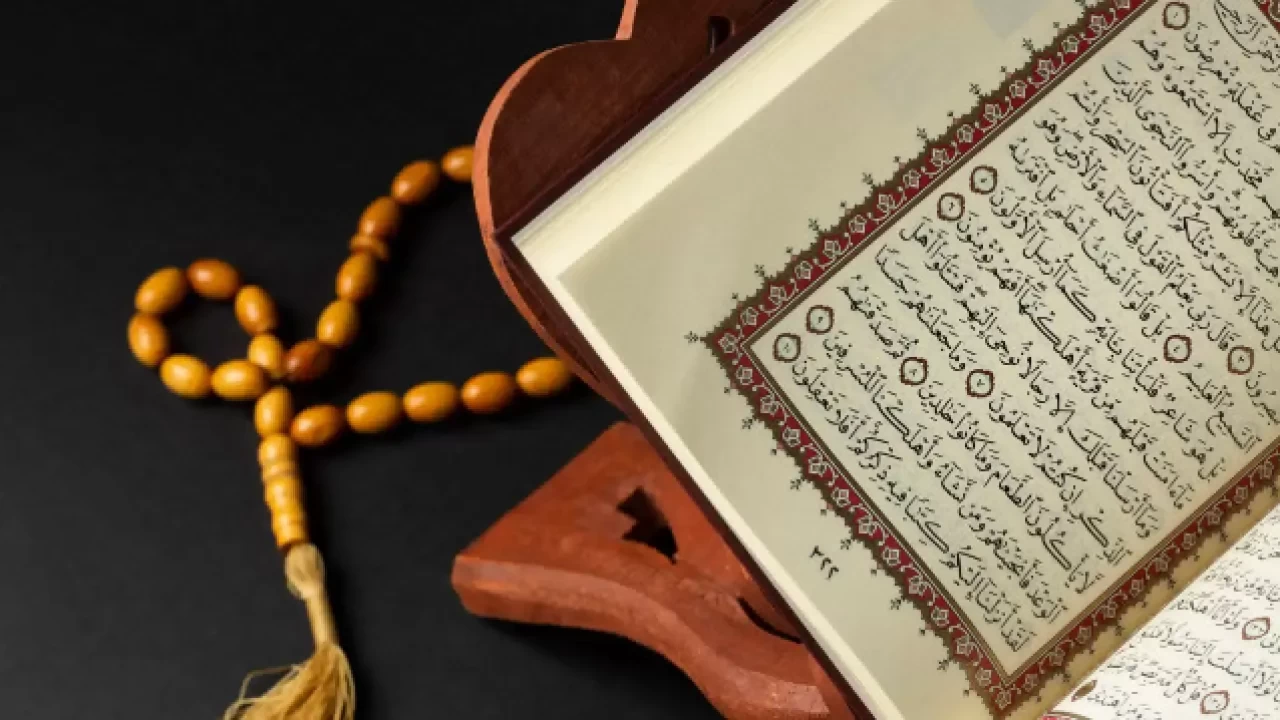 غَفْلَةٍ مُّعْرِضُونَ ١
إِلَّا ٱسْتَمَعُوهُ وَهُمْ
قُلُوبُهُمْ وَأَسَرُّوا۟ ٱلنَّجْوَى ٱلَّذِينَ
هَلْ هَٰذَآ إِلَّا بَشَرٌ مِّثْلُكُمْ أَفَتَأْتُونَ ٱلسِّحْرَ وَأَنتُمْ
تُبْصِرُونَ ٣ قَالَ رَبِّى يَعْلَمُ ٱلْقَوْلَ فِى ٱلسَّمَآءِ وَٱلْأَرْضِ وَهُوَ
ٱلسَّمِيعُ ٱلْعَلِيمُ ٤ بَلْ قَالُوٓا۟ أَضْغَٰثُ أَحْلَٰمٍ بَلِ ٱفْتَرَىٰهُ
بَلْ هُوَ شَاعِرٌ فَلْيَأْتِنَا بِـَٔايَةٍ كَمَآ أُرْسِلَ ٱلْأَوَّلُونَ ٥
مَآ ءَامَنَتْ قَبْلَهُم مِّن قَرْيَةٍ أَهْلَكْنَٰهَآ أَفَهُمْ يُؤْمِنُونَ ٦
وَمَآ أَرْسَلْنَا قَبْلَكَ إِلَّا رِجَالًا نُّوحِىٓ إِلَيْهِمْ فَسْـَٔلُوٓا۟ أَهْلَ
ٱلذِّكْرِ إِن كُنتُمْ لَا تَعْلَمُونَ ٧ وَمَا جَعَلْنَٰهُمْ جَسَدًا
لَّا يَأْكُلُونَ ٱلطَّعَامَ وَمَا كَانُوا۟ خَٰلِدِينَ ٨ ثُمَّ صَدَقْنَٰهُمُ
ٱلْوَعْدَ فَأَنجَيْنَٰهُمْ وَمَن نَّشَآءُ وَأَهْلَكْنَا ٱلْمُسْرِفِينَ ٩
لَقَدْ أَنزَلْنَآ إِلَيْكُمْ كِتَٰبًا فِيهِ ذِكْرُكُمْ أَفَلَا تَعْقِلُونَ ١٠
٣٢٢